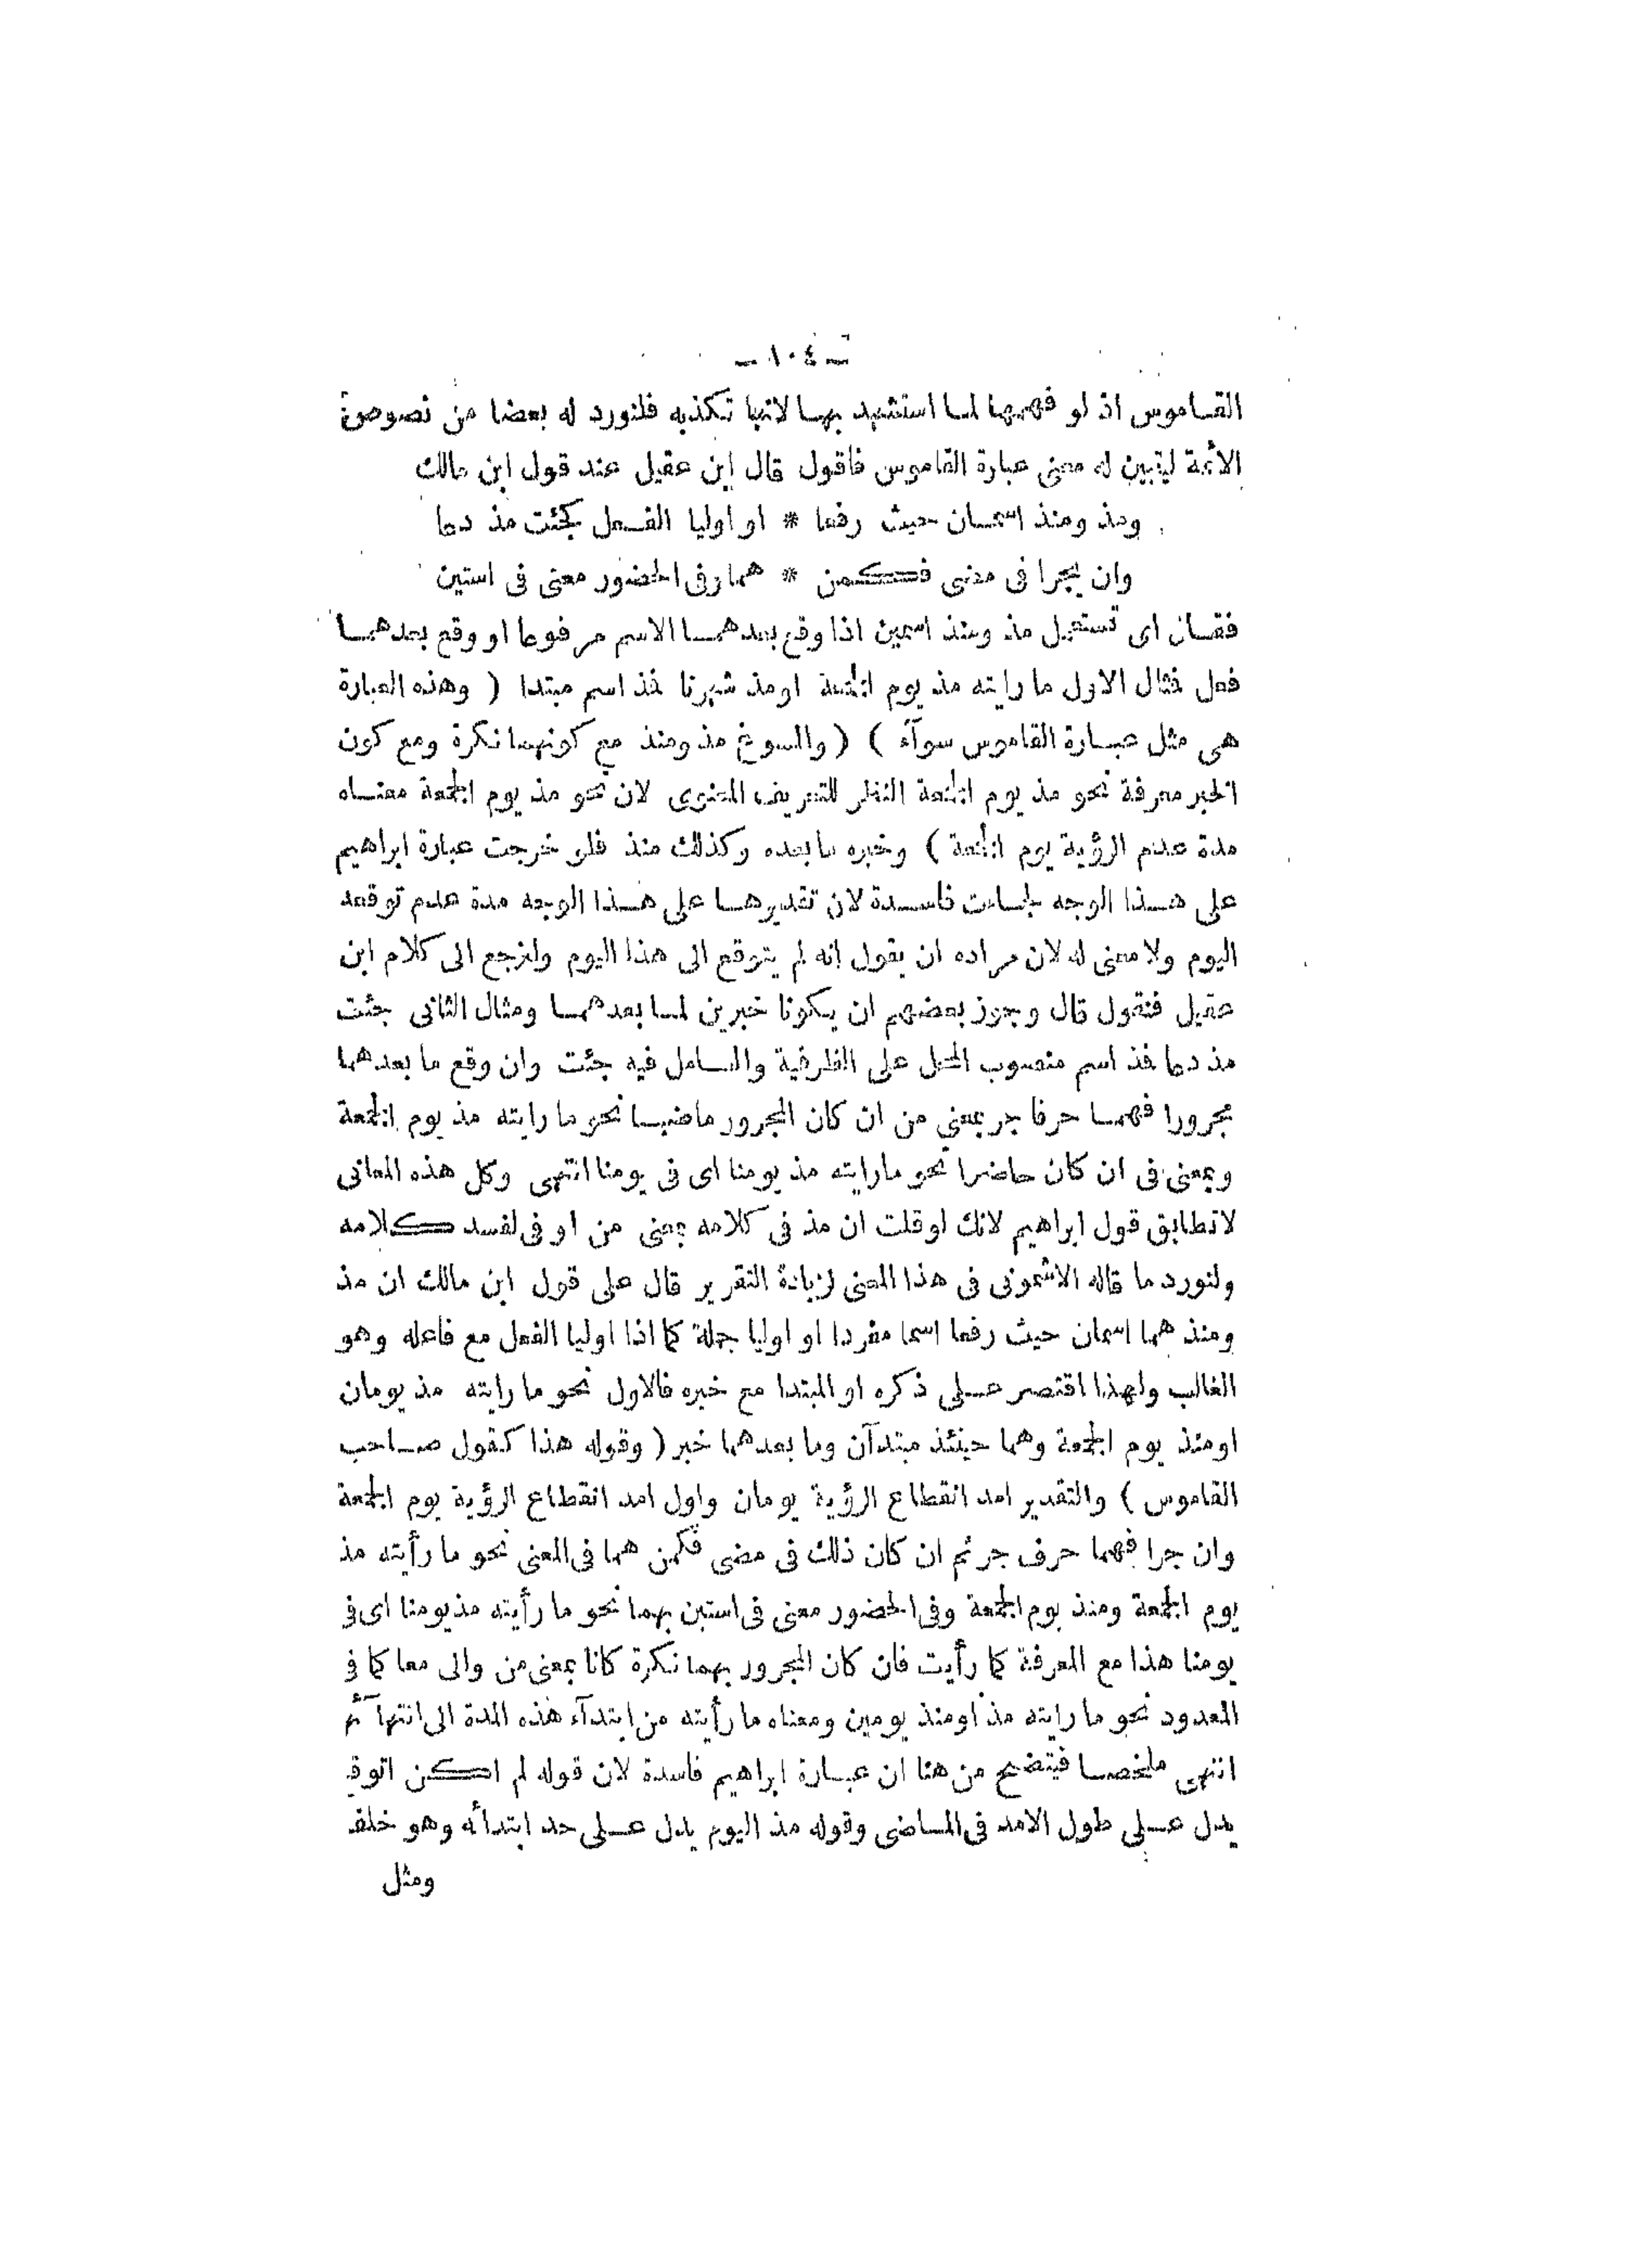 ـ ١٠٤ ـ
القاموس اذ لو فهمها لما استشهد بها لانها تكذبه فلنورد له بعضا من نصوص
الأئمة ليتبين له معنى عبارة القاموس فاقول قال ابن عقيل عند قول ابن مالك
ومذ ومنذ اسمان حيث رفعا * او اوليا الفعل كجئت مذ دعا
وان يجرا فى مضى فكمن * هما وفى الحضور معنى فى استبن
فقال اى تستعمل مذ ومنذ اسمين اذا وقع بعدهما الاسم مرفوعا او وقع بعدهما
فعل فمثال الاول ما رايته مذ يوم الجمعة اومذ شهرنا فمذ اسم مبتدا ( وهذه العبارة
هى مثل عبارة القاموس سوآء ) ( والمسوغ مذ ومنذ مع كونهما نكرة ومع كون
الخبر معرفة نحو مذ يوم الجمعة النظر للتعريف المعنوى لان نحو مذ يوم الجمعة معناه
مدة عدم الرؤية يوم الجمعة ) وخبره ما بعده وكذلك منذ فلو خرجت عبارة ابراهيم
على هذا الوجه لجاءت فاسدة لان تقديرها على هذا الوجه مدة عدم توقعه
اليوم ولا معنى له لان مراده ان يقول انه لم يتوقع الى هذا اليوم ولنرجع الى كلام ابن
عقيل فنقول قال وجوز بعضهم ان يكونا خبرين لما بعدهما ومثال الثانى جئت
مذ دعا فمذ اسم منصوب المحل على الظرفية والعامل فيه جئت وان وقع ما بعدهما
مجرورا فهما حرفا جر بمعنى من ان كان المجرور ماضيا نحو ما رايته مذ يوم الجمعة
وبمعنى فى ان كان حاضرا نحو مارايته مذ يومنا اى فى يومنا انتهى وكل هذه المعانى
لاتطابق قول ابراهيم لانك لوقلت ان مذ فى كلامه بمعنى من او فى لفسد كلامه
ولنورد ما قاله الاشمونى فى هذا المعنى لزيادة التقرير قال على قول ابن مالك ان مذ
ومنذ هما اسمان حيث رفعا اسما مفردا او اوليا جملة كما اذا اوليا الفعل مع فاعله وهو
الغالب ولهذا اقتصر على ذكره او المبتدا مع خبره فالاول نحو ما رايته مذ يومان
اومنذ يوم الجمعة وهما حينئذ مبتدآن وما بعدهما خبر ( وقوله هذا كقول صاحب
القاموس ) والتقدير امد انقطاع الرؤية يومان واول امد انقطاع الرؤية يوم الجمعة
وان جرا فهما حرف جر ثم ان كان ذلك فى مضى فكمن هما فى المعنى نحو ما رأيته مذ
يوم الجمعة ومنذ يوم الجمعة وفى الحضور معنى فى استبن بهما نحو ما رأيته مذ يومنا اى فى
يومنا هذا مع المعرفة كما رأيت فان كان المجرور بهما نكرة كانا بمعنى من والى معا كما فى
المعدود نحو ما رايته مذ اومنذ يومين ومعناه ما رأيته من ابتدآء هذه المدة الى انتهآئها
انتهى ملخصا فيتضح من هنا ان عبارة ابراهيم فاسدة لان قوله لم اكن اتوقع
يدل على طول الامد فى الماضى وقوله مذ اليوم يدل على حد ابتدائه وهو خلف
ومثل